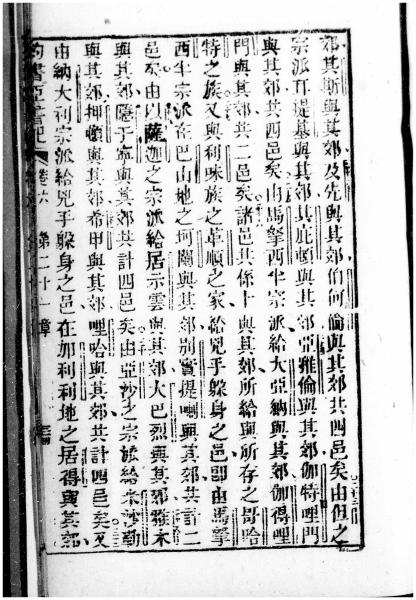 郊其斯與其郊及先與其郊伯何倫與其郊共四邑矣由但之
宗派耳提基與其郊其庇頓與其郊亞雅倫與其郊伽特哩門
與其郊共四邑矣由馬拏西半宗派給大亞納與其郊伽得哩
門與其郊共二邑矣諸邑共係十與其郊所給與所存之哥哈
特之族又與利味族之革順之家給兇手躲身之邑即由馬拏
西半宗派在巴山地之坷闌與其郊別實提喇與其郊共計二
邑矣由以薩迦之宗派給居示雲與其郊大巴烈與其郊雅末
與其郊隱于寧與其郊共計四邑矣由亞沙之宗派給米沙勒
與其郊押頓與其郊希甲與其郊哩哈與其郊共計四邑矣又
由納大利宗派給兇手躲身之邑在加利利地之居得與其郊
約書亞書記 卷六 第二十一章